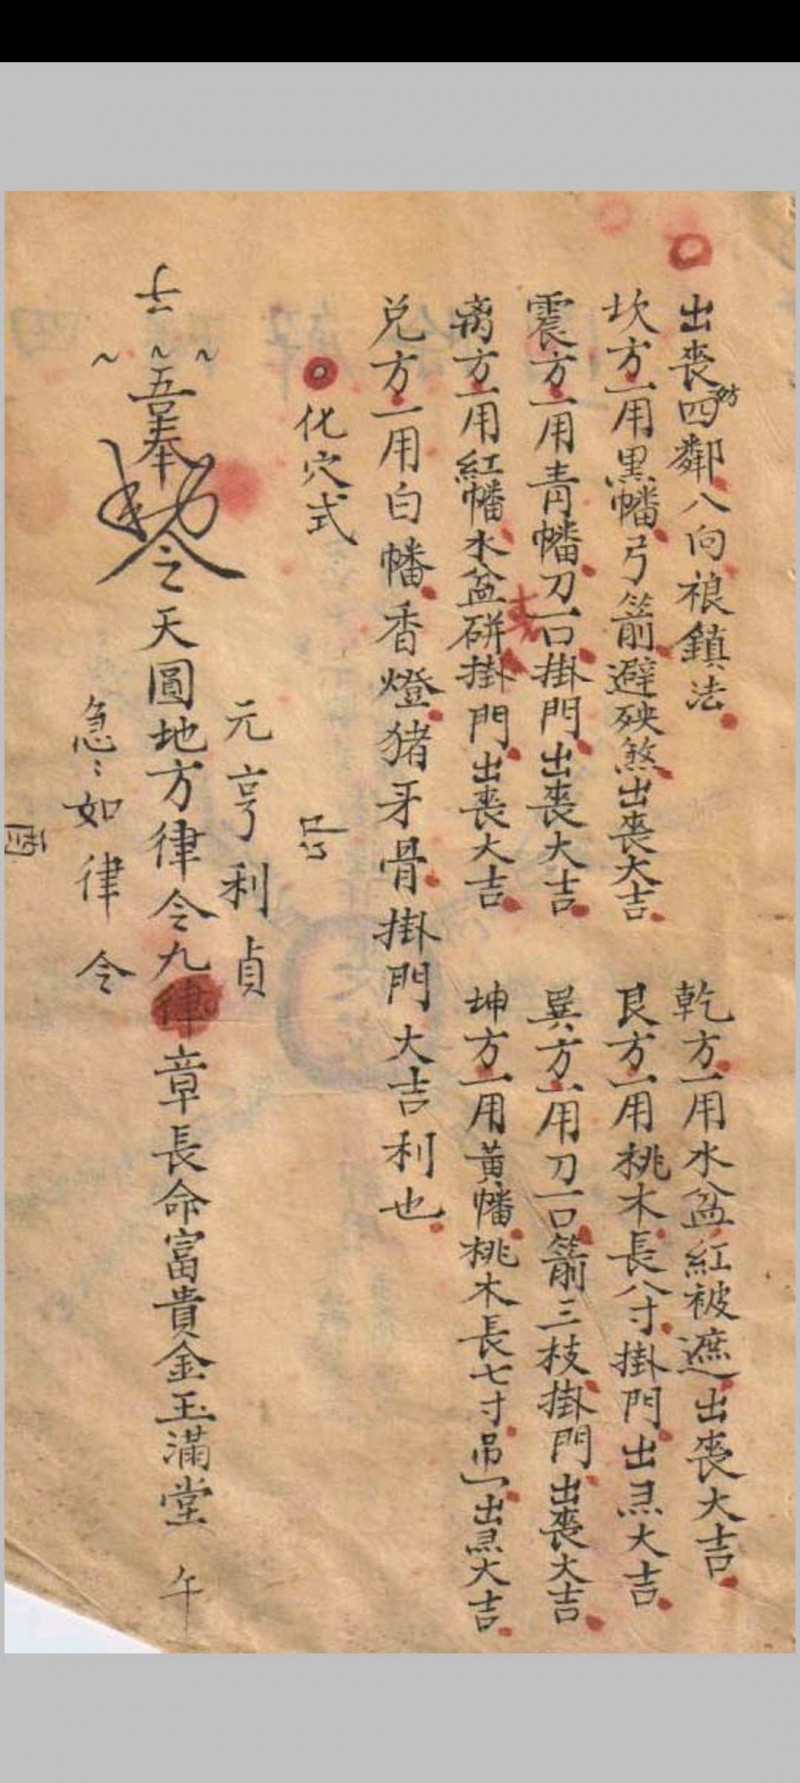 出喪四鄰八向䄄鎮法
妨
乾方一用水盆紅被遮出喪大吉
坎方一用黑幡弓箭避殃煞出喪大吉
艮方一用桃木長八寸掛門出灵大吉
震方一用青幡刀一口掛門出喪大吉
巽方一用刀一口箭三枝掛門出喪大吉
离方一用紅幡水盆硑掛門出喪大吉
坤方一用黃幡桃木長七寸吊一出灵大吉
兑方一用白幡香燈猪牙骨掛門大吉利也
化穴式
卯
元亨利貞
子
吾奉
令天圓地方律令九律章長命富貴金玉滿堂
午
急〻如律令
酉